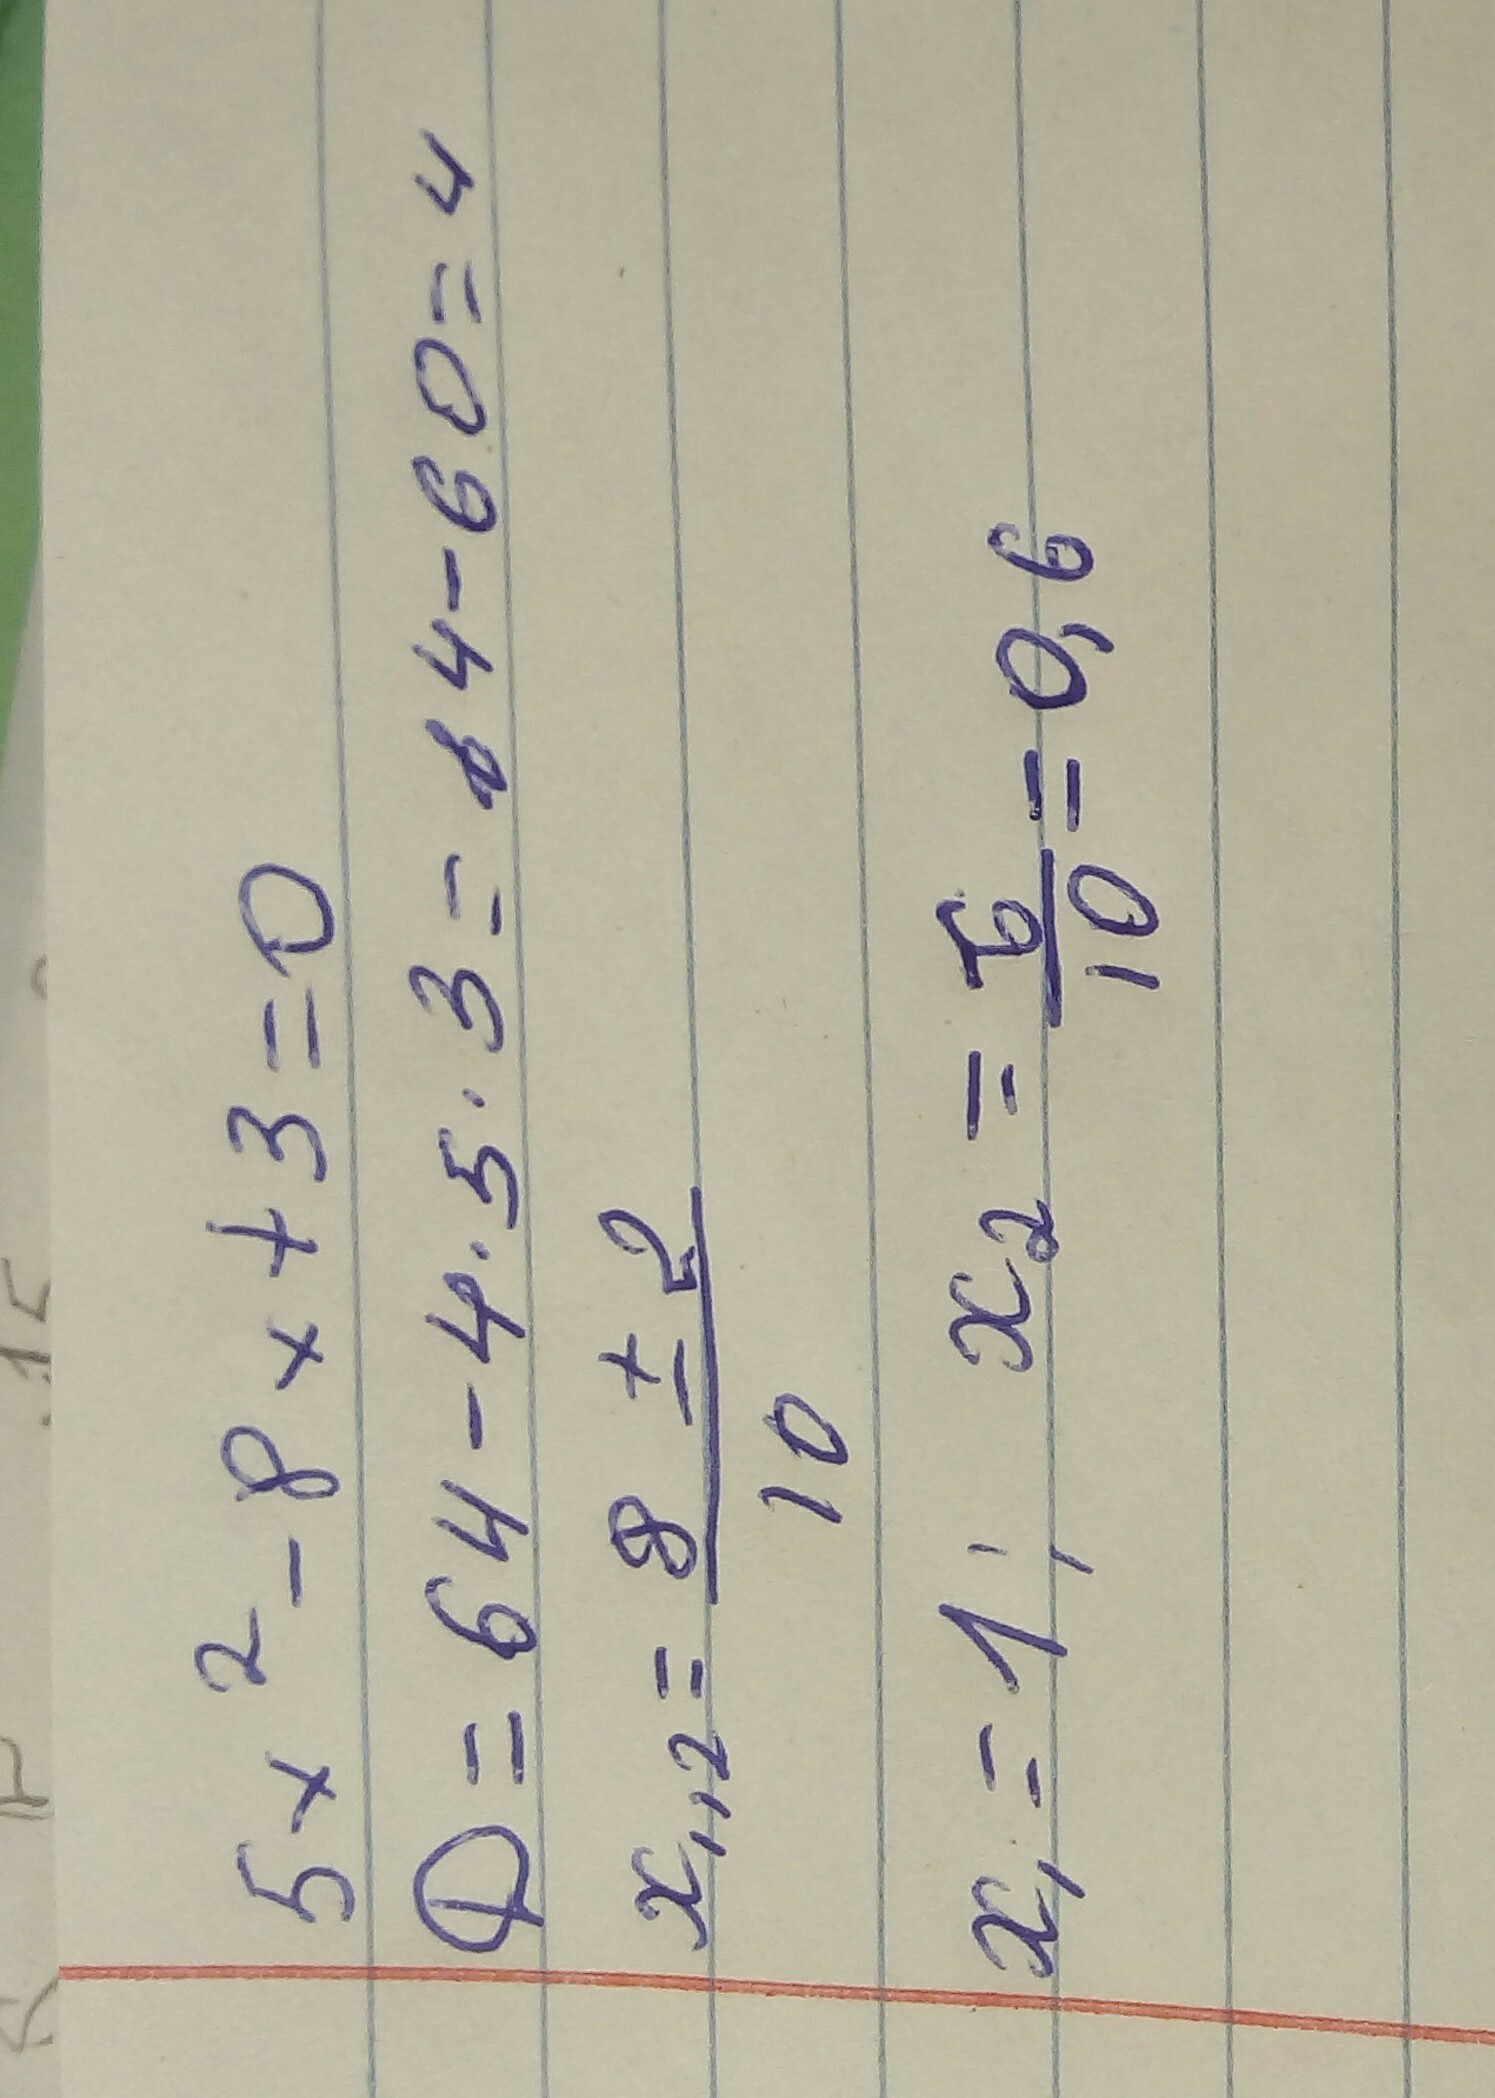 5x² - 8x + 3 = 0
D = 64 - 4 · 5 · 3 = 64 - 60 = 4
x₁,₂ = (8 ± 2) / 10
x₁ = 1; x₂ = 6/10 = 0,6